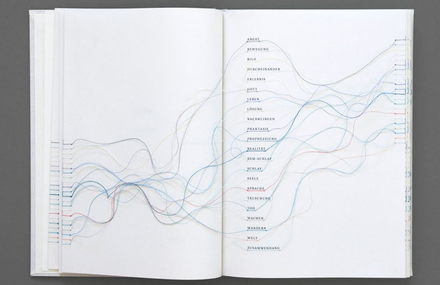 ANGST
BEWEGUNG
BILD
DURCHEINANDER
ERLEBNIS
GOTT
LEBEN
LÖSUNG
NACHKLINGEN
PHANTASIE
PROPHEZEIUNG
REALITÄT
REM-SCHLAF
SCHLAF
SEELE
SPRACHE
TÄUSCHUNG
TOD
WACHEN
WUNDERN
WELT
ZUSAMMENHANG